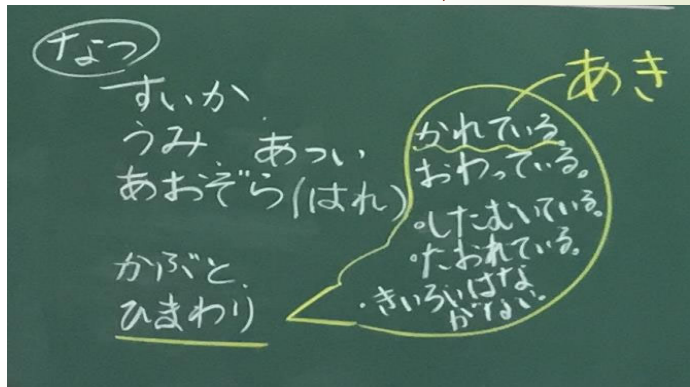 なつ
すいか
うみ あつい
あおぞら(はれ)
かぶと
ひまわり
あき
かれている。
おわっている。
・したむいている。
・たおれている。
・きいろいはな
がない。